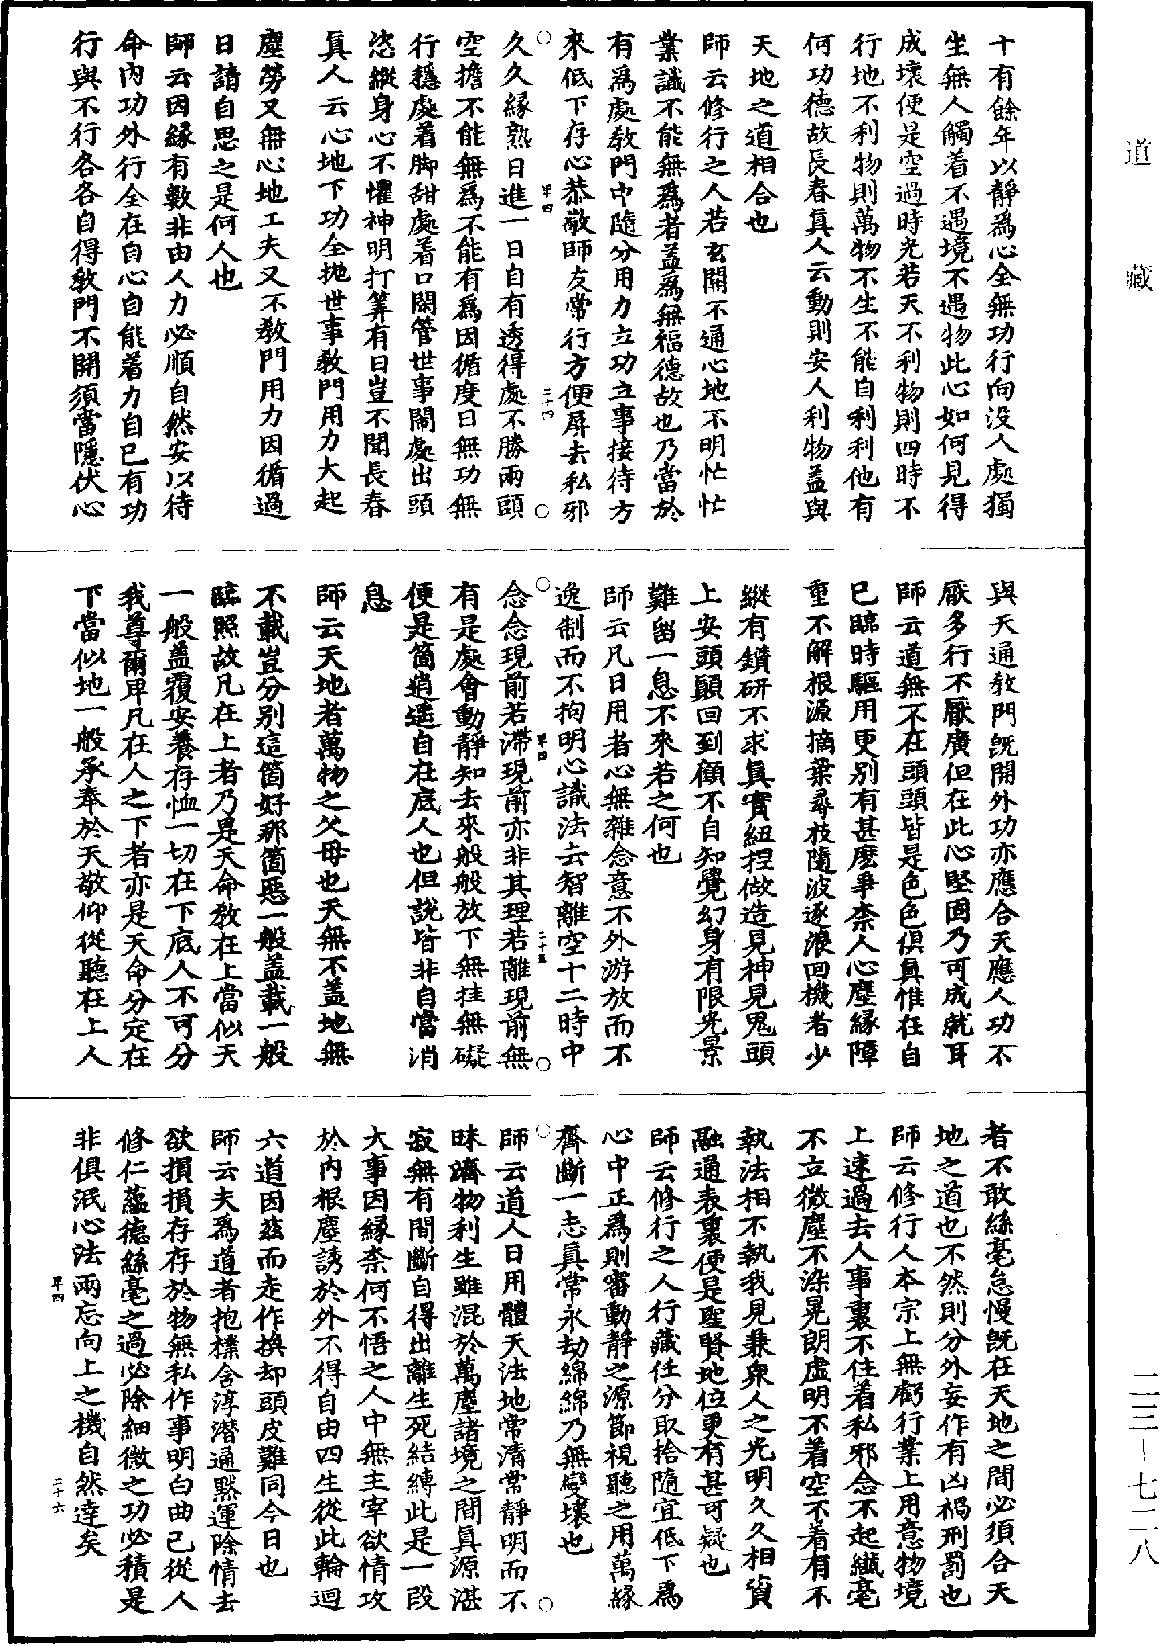 十有餘年以靜爲心全無功行向没人處獨
坐無人觸着不遇境不遇物此心如何見得
成壞便是空過時光若天不利物則四時不
行地不利物則萬物不生不能自利利他有
何功德故長春真人云動則安人利物蓋與
天地之道相合也
師云修行之人若玄關不通心地不明忙忙
業識不能無爲者蓋爲無福德故也乃當於
有爲處教門中隨分用力立功立事接待方
來低下存心恭敬師友常行方便屏去私邪
久久緣熟日進一日自有透得處不勝兩頭
空擔不能無爲不能有爲因循度日無功無
行穩處着脚甜處着口閑管世事鬧處出頭
恣縱身心不懼神明打筭有日豈不聞長春
真人云心地下功全抛世事教門用力大起
塵勞又無心地工夫又不教門用力因循過
日請自思之是何人也
師云因緣有數非由人力必順自然安以待
命內功外行全在自心自能着力自已有功
行與不行各各自得教門不開須當隱伏心
與天通教門旣開外功亦應合天應人功不
厭多行不厭廣但在此心堅固乃可成就耳
師云道無不在頭頭皆是色色俱真惟在自
已臨時驅用更別有甚麽事柰人心塵緣障
重不解根源摘葉尋枝隨波逐浪回機者少
縱有鑽研不求真實紐捏做造見神見鬼頭
上安頭顛回到顧不自知覺幻身有限光景
難留一息不來若之何也
師云凡日用者心無雜念意不外游放而不
逸制而不拘明心識法去智離空十二時中
念念現前若滯現前亦非其理若離現前無
有是處會動靜知去來般般放下無挂無礙
便是箇逍遥自在底人也但說皆非自當消
息
師云天地者萬物之父母也天無不蓋地無
不載豈分別這箇好那箇惡一般蓋載一般
臨照故凡在上者乃是天命教在上當似天
一般蓋覆安養存恤一切在下底人不可分
我尊爾卑凡在人之下者亦是天命分定在
下當似地一般承奉於天敬仰從聽在上人
者不敢絲毫怠慢旣在天地之間必須合天
地之道也不然則分外妄作有凶禍刑罰也
師云修行人本宗上無虧行業上用意物境
上速過去人事裏不住着私邪念不起纖毫
不立微塵不染晃朗虛明不着空不着有不
執法相不執我見兼衆人之光明久久相資
融通表裏便是聖賢地位更有甚可疑也
師云修行之人行藏任分取捨隨宜低下爲
心中正爲則審動靜之源節視聽之用萬緣
齊斷一志真常永劫綿綿乃無變壞也
師云道人日用體天法地常清常靜明而不
昧濟物利生雖混於萬塵諸境之間真源湛
寂無有間斷自得出離生死結縛此是一段
大事因緣柰何不悟之人中無主宰欲情攻
於內根塵誘於外不得自由四生從此輪迴
六道因兹而走作換却頭皮難同今日也
師云夫爲道者抱樸含淳潜通默運除情去
欲損損存存於物無私作事明白曲己從人
修仁蘊德絲毫之過必除細微之功必積是
非俱泯心法兩忘向上之機自然達矣
早四
二十四
早四
二十五
早四
二十六
道藏
二三-七二八